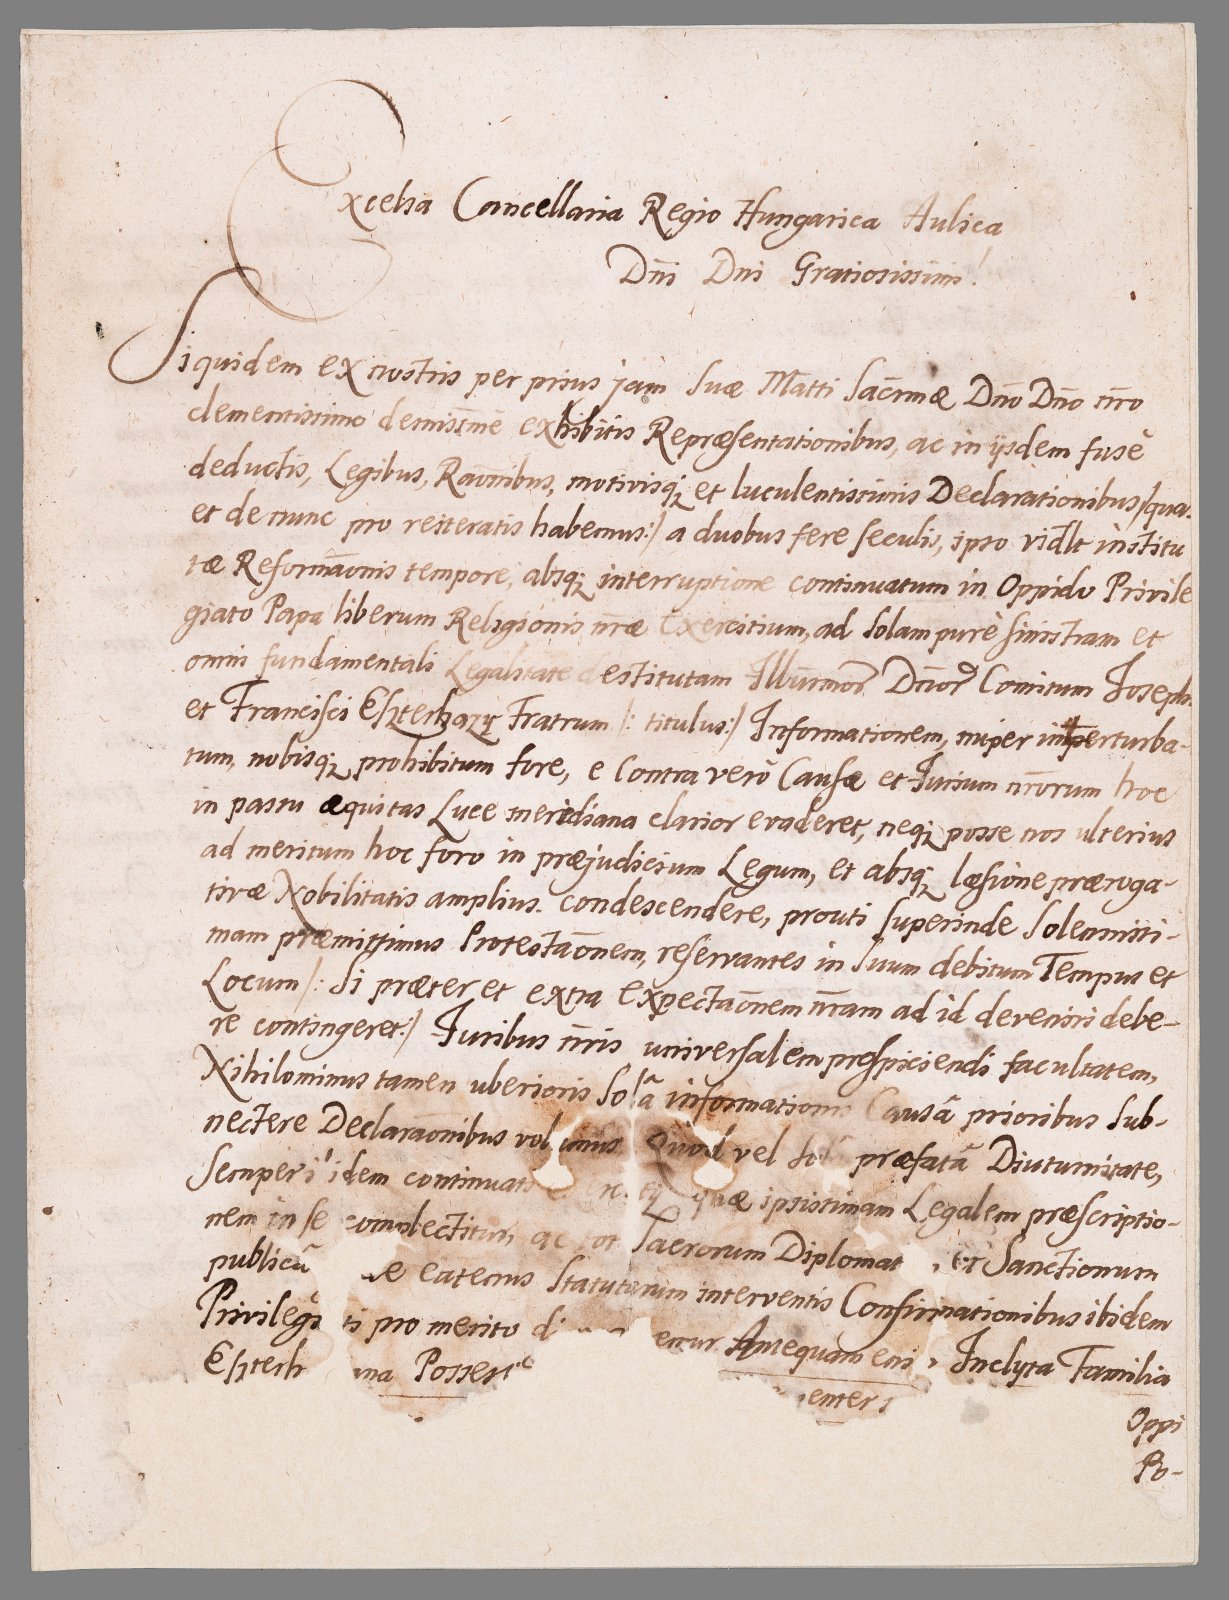 Excelsa Cancellaria Regio Hungarica Aulica
Dñi Dni Gratiosissimi!
Siquidem ex nostris per prius jam Suæ Matti Sacrmæ Dño Dño nr̃o
clementissimo demissme exhibitis Repræsentationibus, ac in ijsdem fusè
deductis, Legibus, Raōnibus, motivisqȝ et luculentissimis Declarationibus /:qua:
et de nunc pro reiteratis habemus:/ a duobus fere seculis, ipso vidlt institu
tæ Reformāonis tempore, absqȝ interruptione continuatum in Oppido Privile
giato Papa liberum Religionis nr̃æ Exercitium, ad solam purè sinistram et
omni fundamentali Legalitate destitutam Illūrmor. Dñor Comitum Joseph.
et Francisci Eszterhazy Fratrum /: titulus:/ Informationem, nuper imperturba-
tum, nobisqȝ prohibitum fore, e contra verò Causæ et Jurium nr̃orum hoc
in passu æquitas Luce meridiana clarior evaderet, neqȝ posse nos ulterius
ad meritum hoc foro in præjudicium Legum, et absqȝ læsione præroga-
tivæ Nobilitatis amplius condescendere, prouti superinde Solenniti-
mam præmittimus Protestaōnem, reservantes in suum debitum Tempus et
Locum /: Si præter et extra expectaōnem nr̃am ad id deveniri debe-
re contingeret:/ Juribus nr̃is universalem prospiciendi facultatem,
Nihilominus tamen uberioris Solā informationis Causā prioribus sub-
nectere Declaraōnibus volumus Quod vel præfatā Diuturnitate,
Semper idem continuat quæ ipsissimam Legalem præscriptio-
nem in se complectitur, ac tot Sacrorum Diplomat et Sanctionum
publicā e eatenus Statutorum interventis Confirmationibus ibidem
Privilegi ti pro merito di etur Antequam eni Inclyta Familia
Eszterh na Possess enter
Oppi
Po-